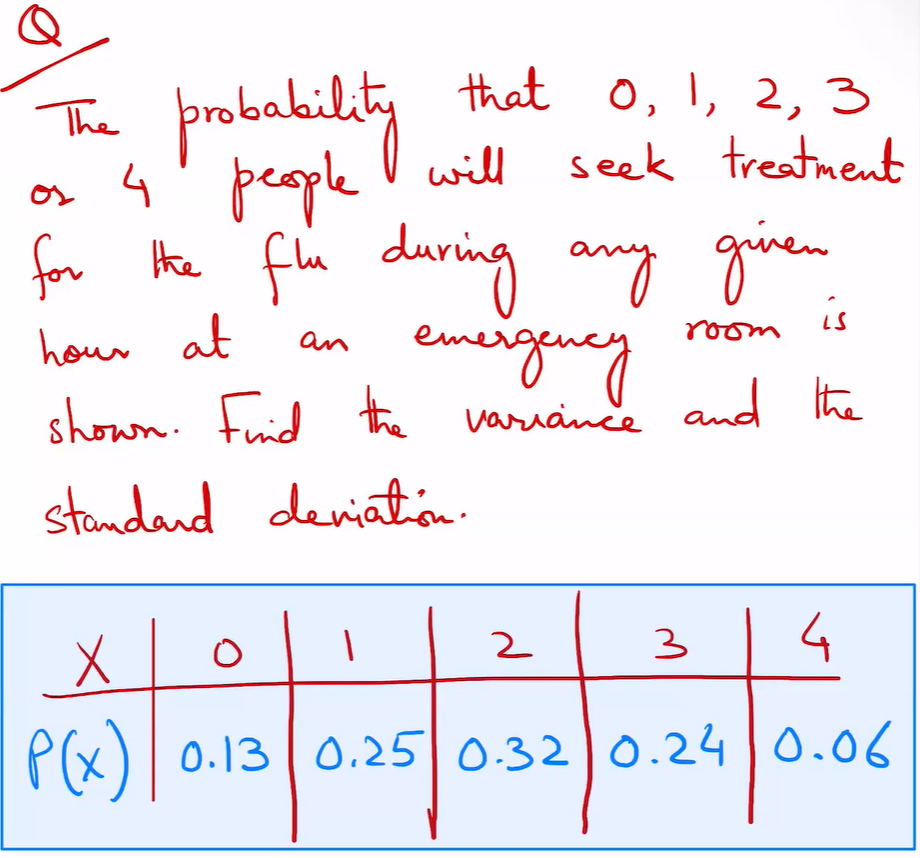 Q
The probability that 0, 1, 2, 3
or 4 people will seek treatment
for the flu during any given
hour at an emergency room is
shown. Find the variance and the
standard deviation.
X 0 1 2 3 4
P(x) 0.13 0.25 0.32 0.24 0.06